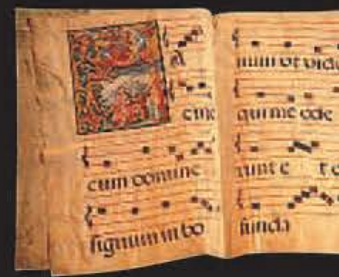 A
c me
cum domine
signum in bo
num ut vide
qui me ode
runt e t
funda